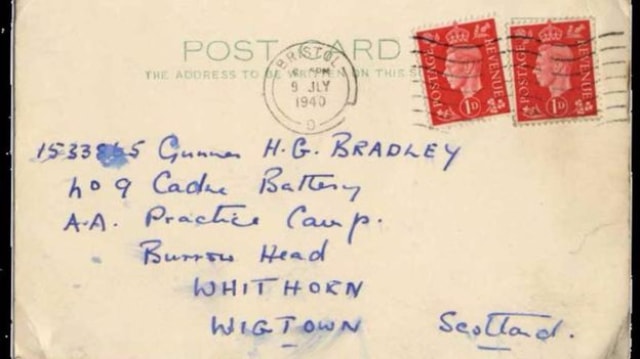 POST CARD
THE ADDRESS TO BE WRITTEN ON THIS
BRISTOL
9 JLY
1940
D
POSTAGE REVENUE
1D
POSTAGE REVENUE
1D
Gunner H.G. BRADLEY
No 9 Cadre Battery
A.A. Practice Camp.
Burrow Head
WHITHORN
WIGTOWN Scotland.